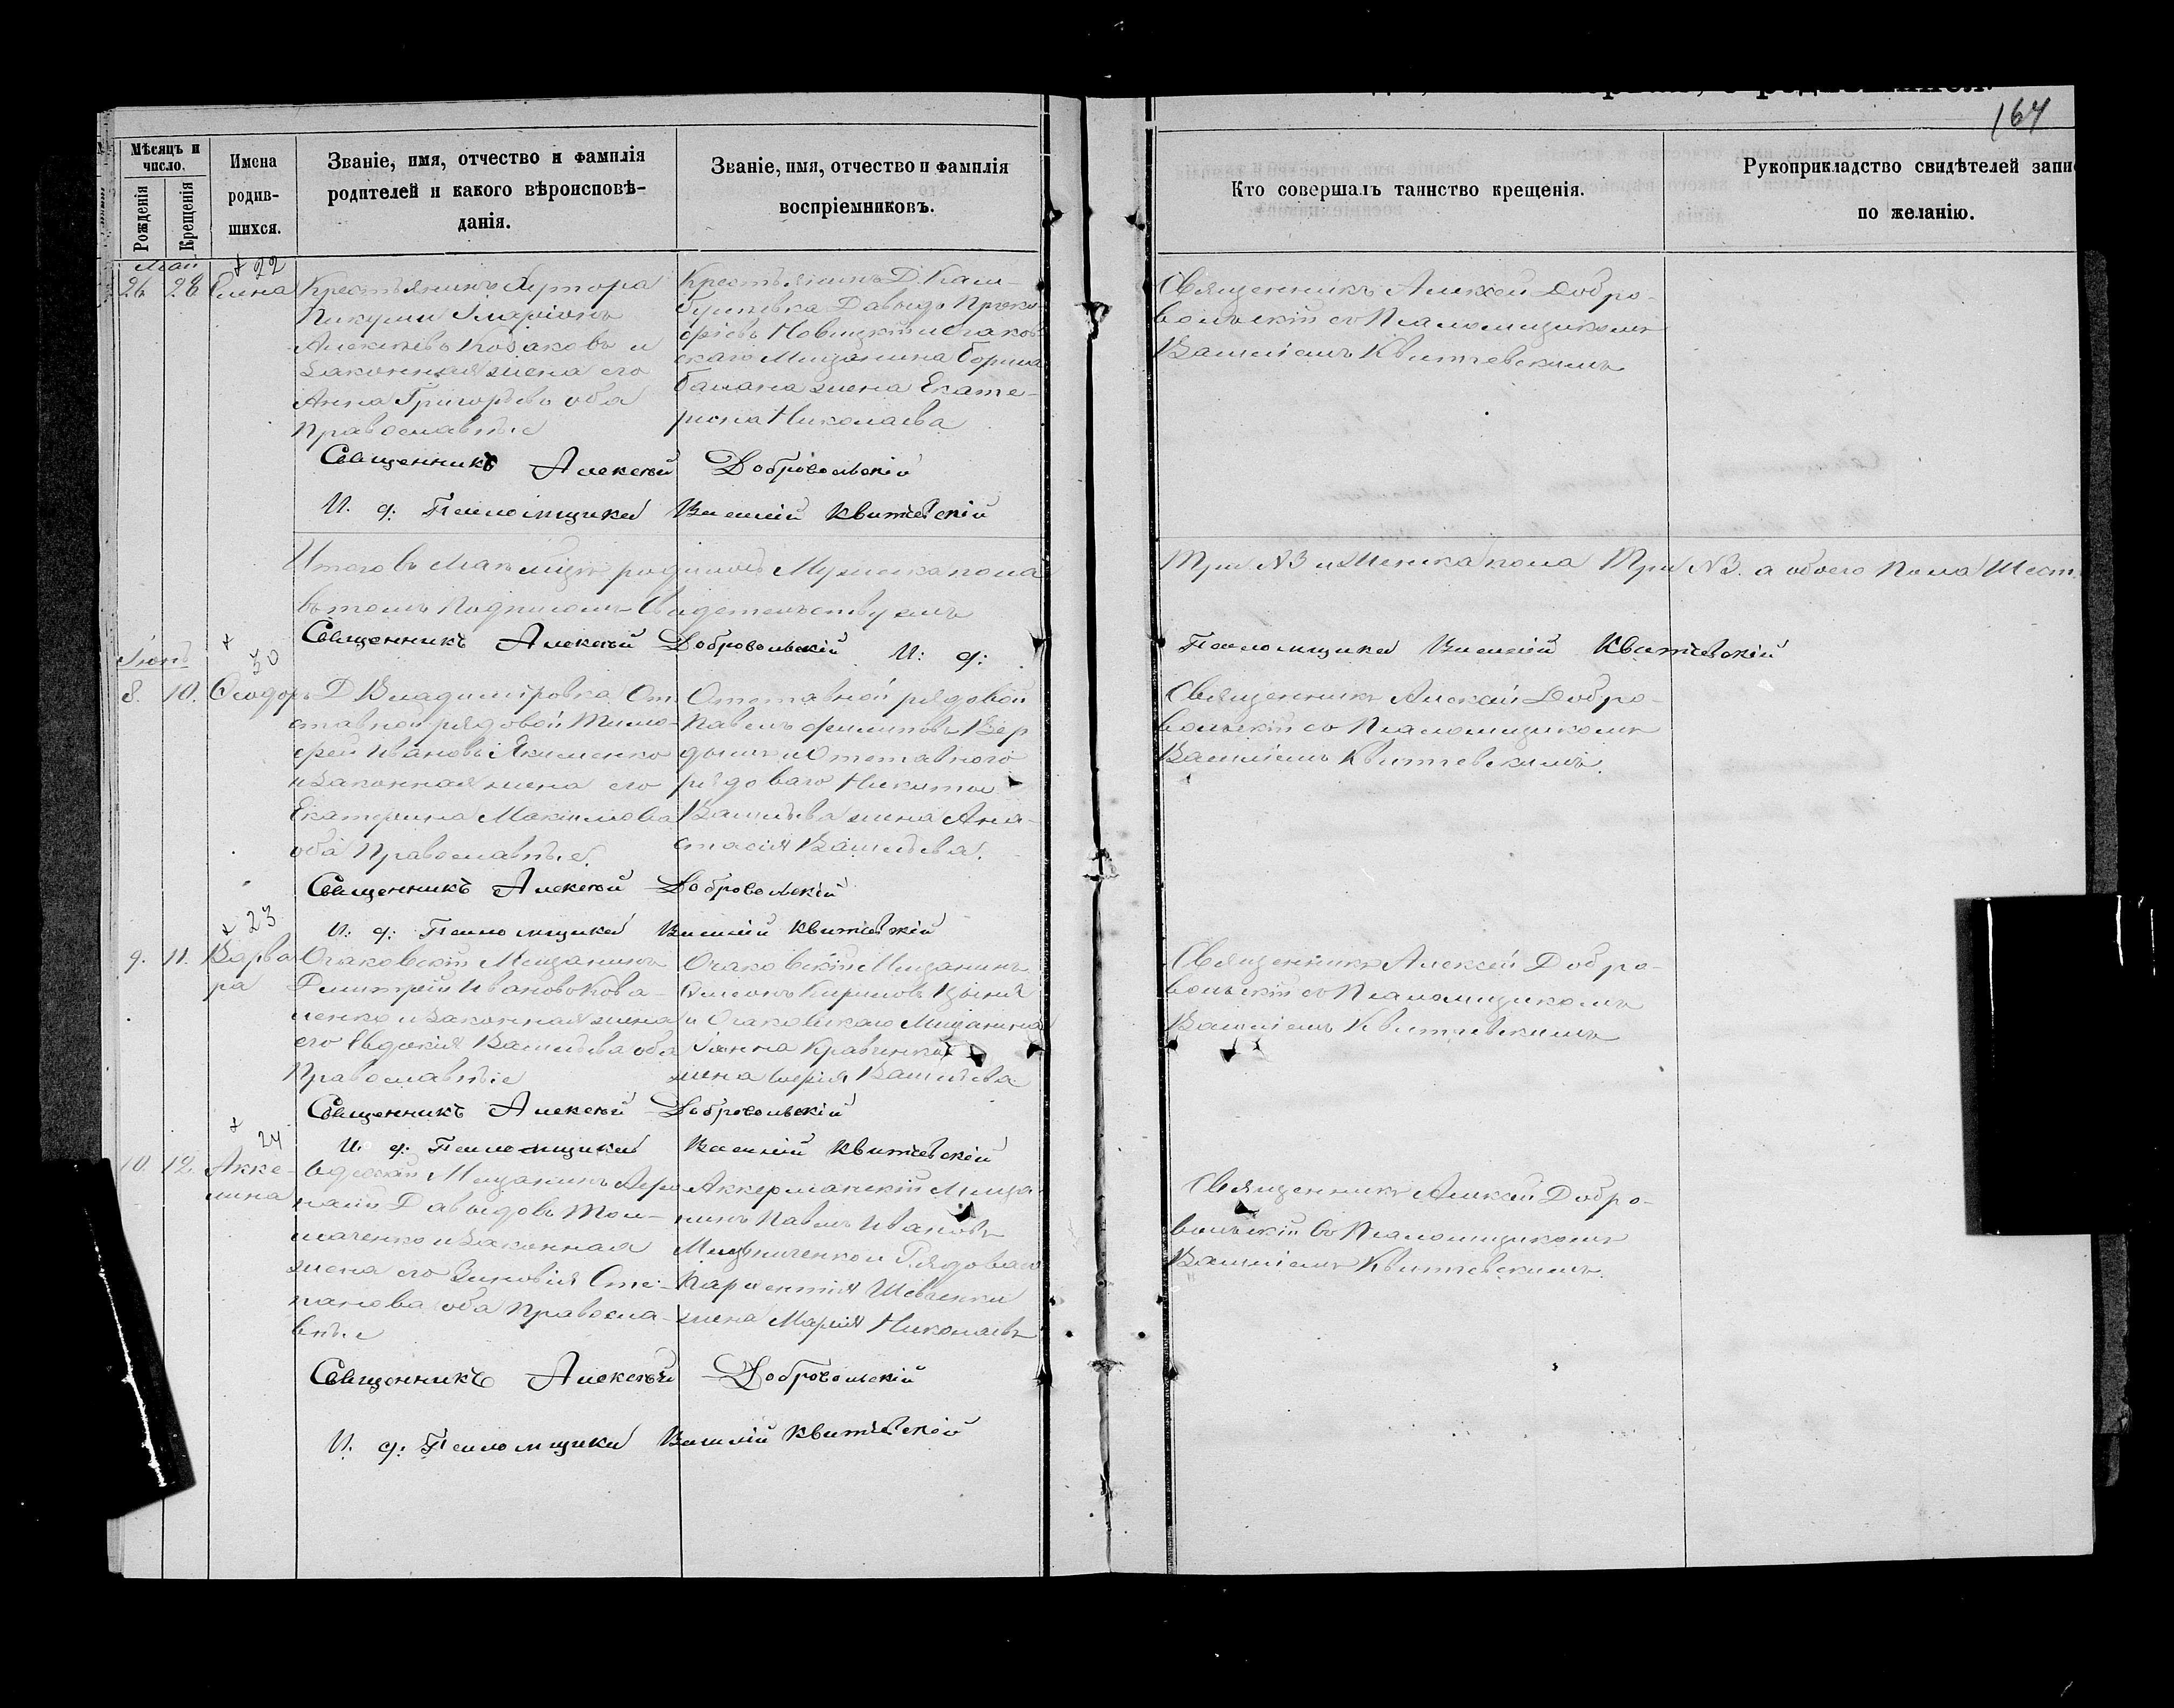 164
Мѣсяцъ и число.
Рожденія
Крещенія
Имена родив-
шихся.
Званіе, имя, отчество и фамилія
родителей и какого вѣроисповѣ-
данія.
Званіе, имя, отчество и фамилія
воспріемниковъ.
Кто совершалъ таинство крещенія.
Рукоприкладство свидѣтелей запи
по желанію.
Май
+ 22
26 28 Елена
Крестьянинъ Хутора
Алексѣевъ Козаковъ и
законная жена его
Анна Григорьева оба
Православные
Крестьянинъ Д. Кам-
Давыдъ Проко
фіевъ Новицкій и Очаков
скаго Мещанина
жена Екате-
рина Николаева
Священникъ Алексѣй Добро-
вольскій съ Псаломщикомъ
Василіемъ Квитчевскимъ
Священникъ Алексѣй Добровольскій
И. д: Псаломщика Василій Квитчевскій
Итого въ Маѣ мѣсяцѣ родилось Мужеска пола Три №3 и Женска пола Три №3. а обоего Пола Шест
въ томъ Подписомъ Свидетельствуемъ
Священникъ Алексѣй Добровольскій И: д: Псаломщика Василій Квитчевскій
Іюнь
+ 30
8. 10. Ѳеодоръ
Д Владиміровка От
ставной рядовой Тимо-
фей Ивановъ Якименко
и законная жена его
Екатерина Максимова
оба Православные.
Отставной рядовой
Павелъ Филиповъ
и Отставного
рядоваго Никиты
Васильева жена Ана-
стасія Васильева.
Священникъ Алексѣй Добро-
вольскій съ Псаломщикомъ
Василіемъ Квитчевскимъ.
Священникъ Алексѣй Добровольскій
И: д: Псаломщика Василій Квитчевскій
+ 23
9. 11. Варва
ра
Очаковскій Мещанинъ
Димитрій Ивановъ Кова-
ленко и законная жена
его Евдокія Васильева оба
Православные
Очаковскій Мещанинъ
Симеонъ Кириловъ
и Очаковскаго Мещанина
Іоанна Кравченка
жена Васильева
Священникъ Алексѣй Добро-
вольскій съ Псаломщикомъ
Василіемъ Квитчевскимъ
Священникъ Алексѣй Добровольскій
И. д: Псаломщика Василій Квитчевскій
+ 24
10. 12. Акке-
лина
Одесскій Мещанинъ
Давыдовъ Тол-
маченко и законная
жена его Зиновія Сте-
панова оба Правосла-
вные
Аккерманскій Меща-
нинъ Павелъ Ивановъ
и Рядоваго
жена Марія Николаевъ
Священникъ Алексѣй Добро-
вольскій съ Псаломщикомъ
Василіемъ Квитчевскимъ.
Священникъ Алексѣй Добровольскій
И. д: Псаломщика Василій Квитчевскій